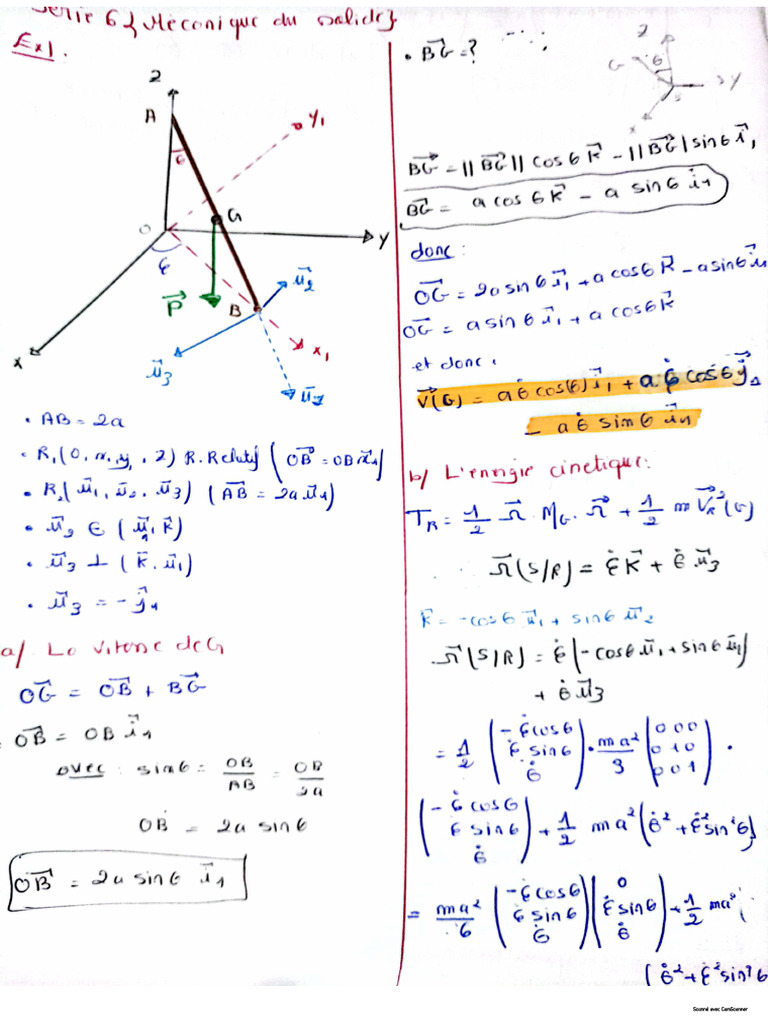 Serie 6 { Méconique du solide }
Ex1.
Z
A
6
y1
G
O
Y
ε
P⃗
B
u⃗2
x
x1
u⃗3
u⃗1
• AB = 2a
• R1(O, x1, y1, Z) R. Relatif (OB⃗ = OB i⃗1)
• R2(u⃗1, u⃗2, u⃗3) (AB⃗ = 2a u⃗1)
• u⃗2 ∈ (u⃗1, k⃗)
• u⃗3 ⊥ (k⃗, u⃗1)
• u⃗3 = - j⃗1
a/ La vitesse de G
OG⃗ = OB⃗ + BG⃗
OB⃗ = OB i⃗1
avec : sin6 = OB/AB = OB/2a
OB = 2a sin6
OB⃗ = 2a sin6 i⃗1
• BG⃗ = ?
Z
G
6
Y
x
BG⃗ = ||BG⃗|| cos6 k⃗ - ||BG⃗| sin6 i⃗1
BG⃗ = a cos6 k⃗ - a sin6 i⃗1
donc :
OG⃗ = 2a sin6 i⃗1 + a cos6 k⃗ - a sin6 i⃗1
OG⃗ = a sin6 i⃗1 + a cos6 k⃗
et donc :
V⃗(G) = a6̇ cos(6) i⃗1 + a ε̇ cos6 j⃗1
- a6̇ sin6 i⃗1
b/ L'energie cinetique:
TR = 1/2 Ω⃗ . MG. Ω⃗ + 1/2 m V⃗R²(G)
Ω⃗(S/R) = ε̇ K⃗ + 6̇ u⃗3
k⃗ = -cos6 u⃗1 + sin6 u⃗2
Ω⃗(S/R) = ε̇ (-cos6 u⃗1 + sin6 u⃗2)
+ 6̇ u⃗3
= 1/2 (-ε̇ cos6 ε̇ sin6 6̇) • ma²/3 (0 0 0 0 1 0 0 0 1) •
(-ε̇ cos6 ε̇ sin6 6̇) + 1/2 ma² (6̇² + ε̇² sin²6)
= ma²/6 (-ε̇ cos6 ε̇ sin6 6̇) (0 ε̇ sin6 6̇) + 1/2 ma² (
(6̇² + ε̇² sin²6
Scanné avec CamScanner